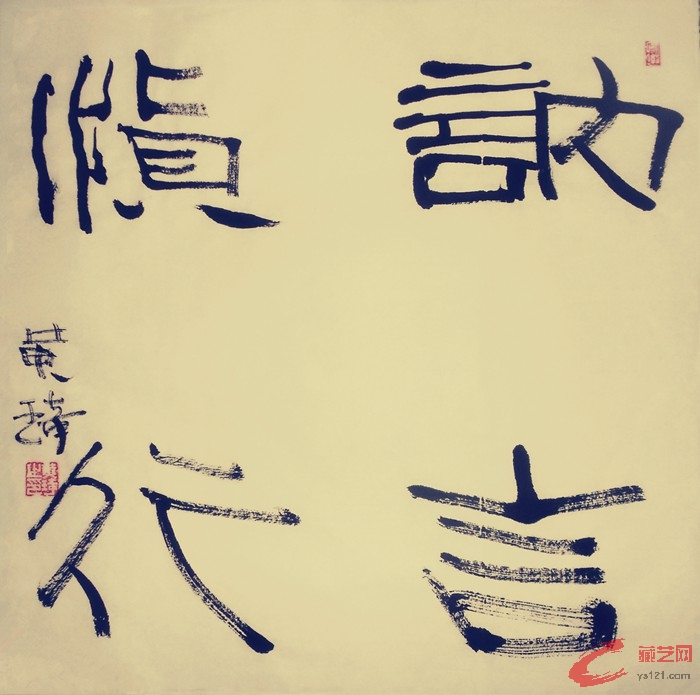 訥言
愼行
黄琦
藏艺网
ys121.com